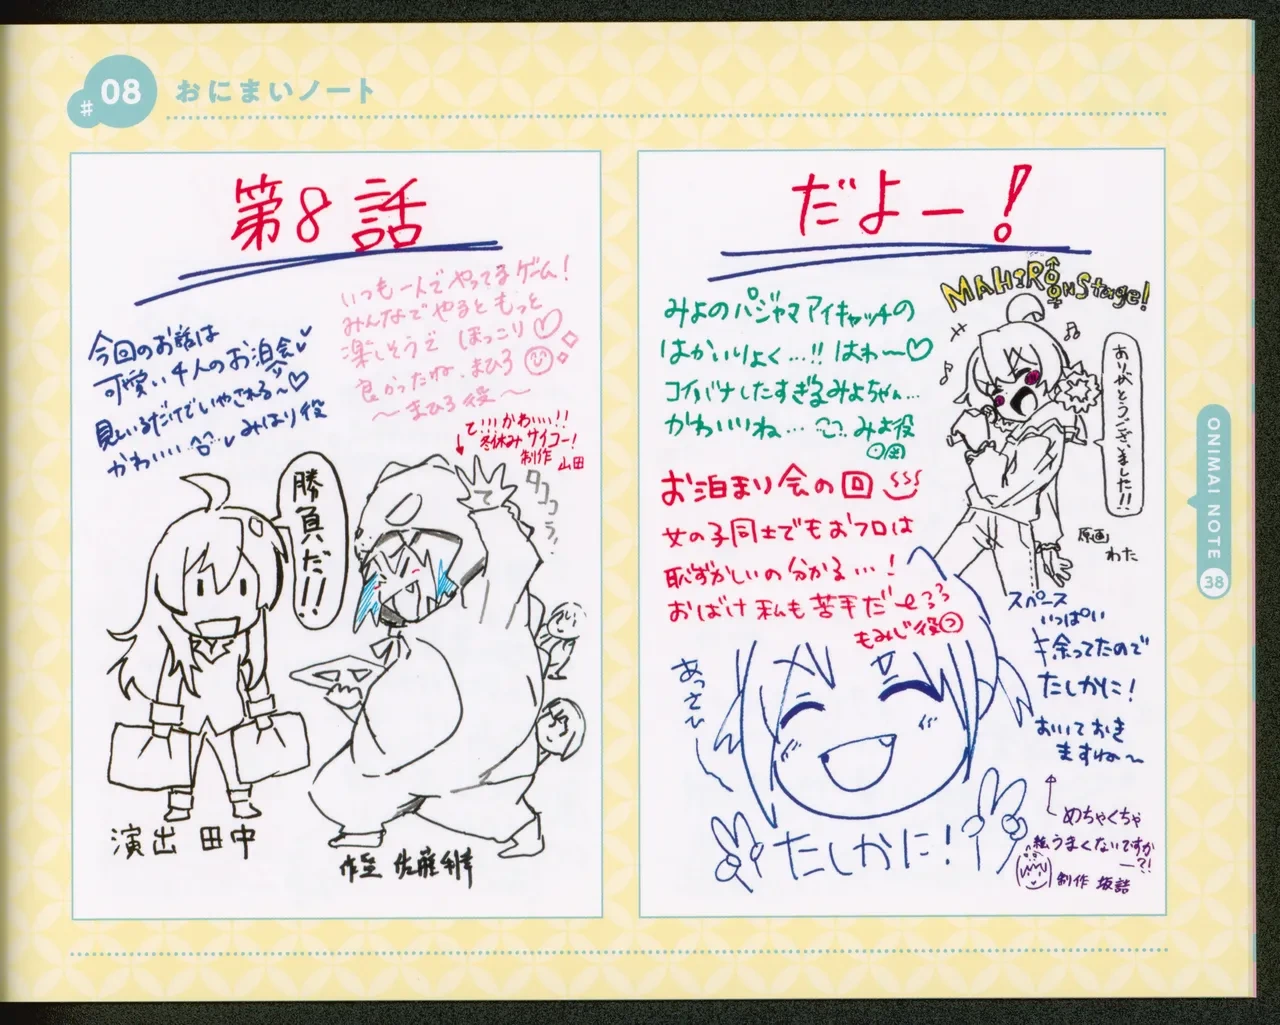 #08
おにまいノート
第8話
いつも一人でやってるゲーム!
みんなでやるともっと
楽しそうで ほっこり♡
良かったね、まひろ
〜まひろ役〜
今回のお話は
可愛い4人のお泊会
見ているだけでいやされる〜♡
かわいい みはり役
て!!!かわいい!!
冬休みサイコー!
制作 山田
勝負だ!!
演出 田中
作監 佐藤利幸
だよー!
MAHIRO ON Stage!
みよのパジャマアイキャッチの
はかいりょく…!! はわ〜♡
コイバナしたすぎるみよちゃん…
かわいいね… みよ役
ありがとうございました!!
原画
わた
お泊まり会の回
女の子同士でもおフロは
恥ずかしいの分かる…!
おばけ私も苦手だ〜
もみじ役
スペース
いっぱい
余ってたので
たしかに!
おいておき
ますね〜
あっさひ
たしかに!
めちゃくちゃ
絵うまくないですか
ー?!
制作 坂詰
ONIMAI NOTE
38